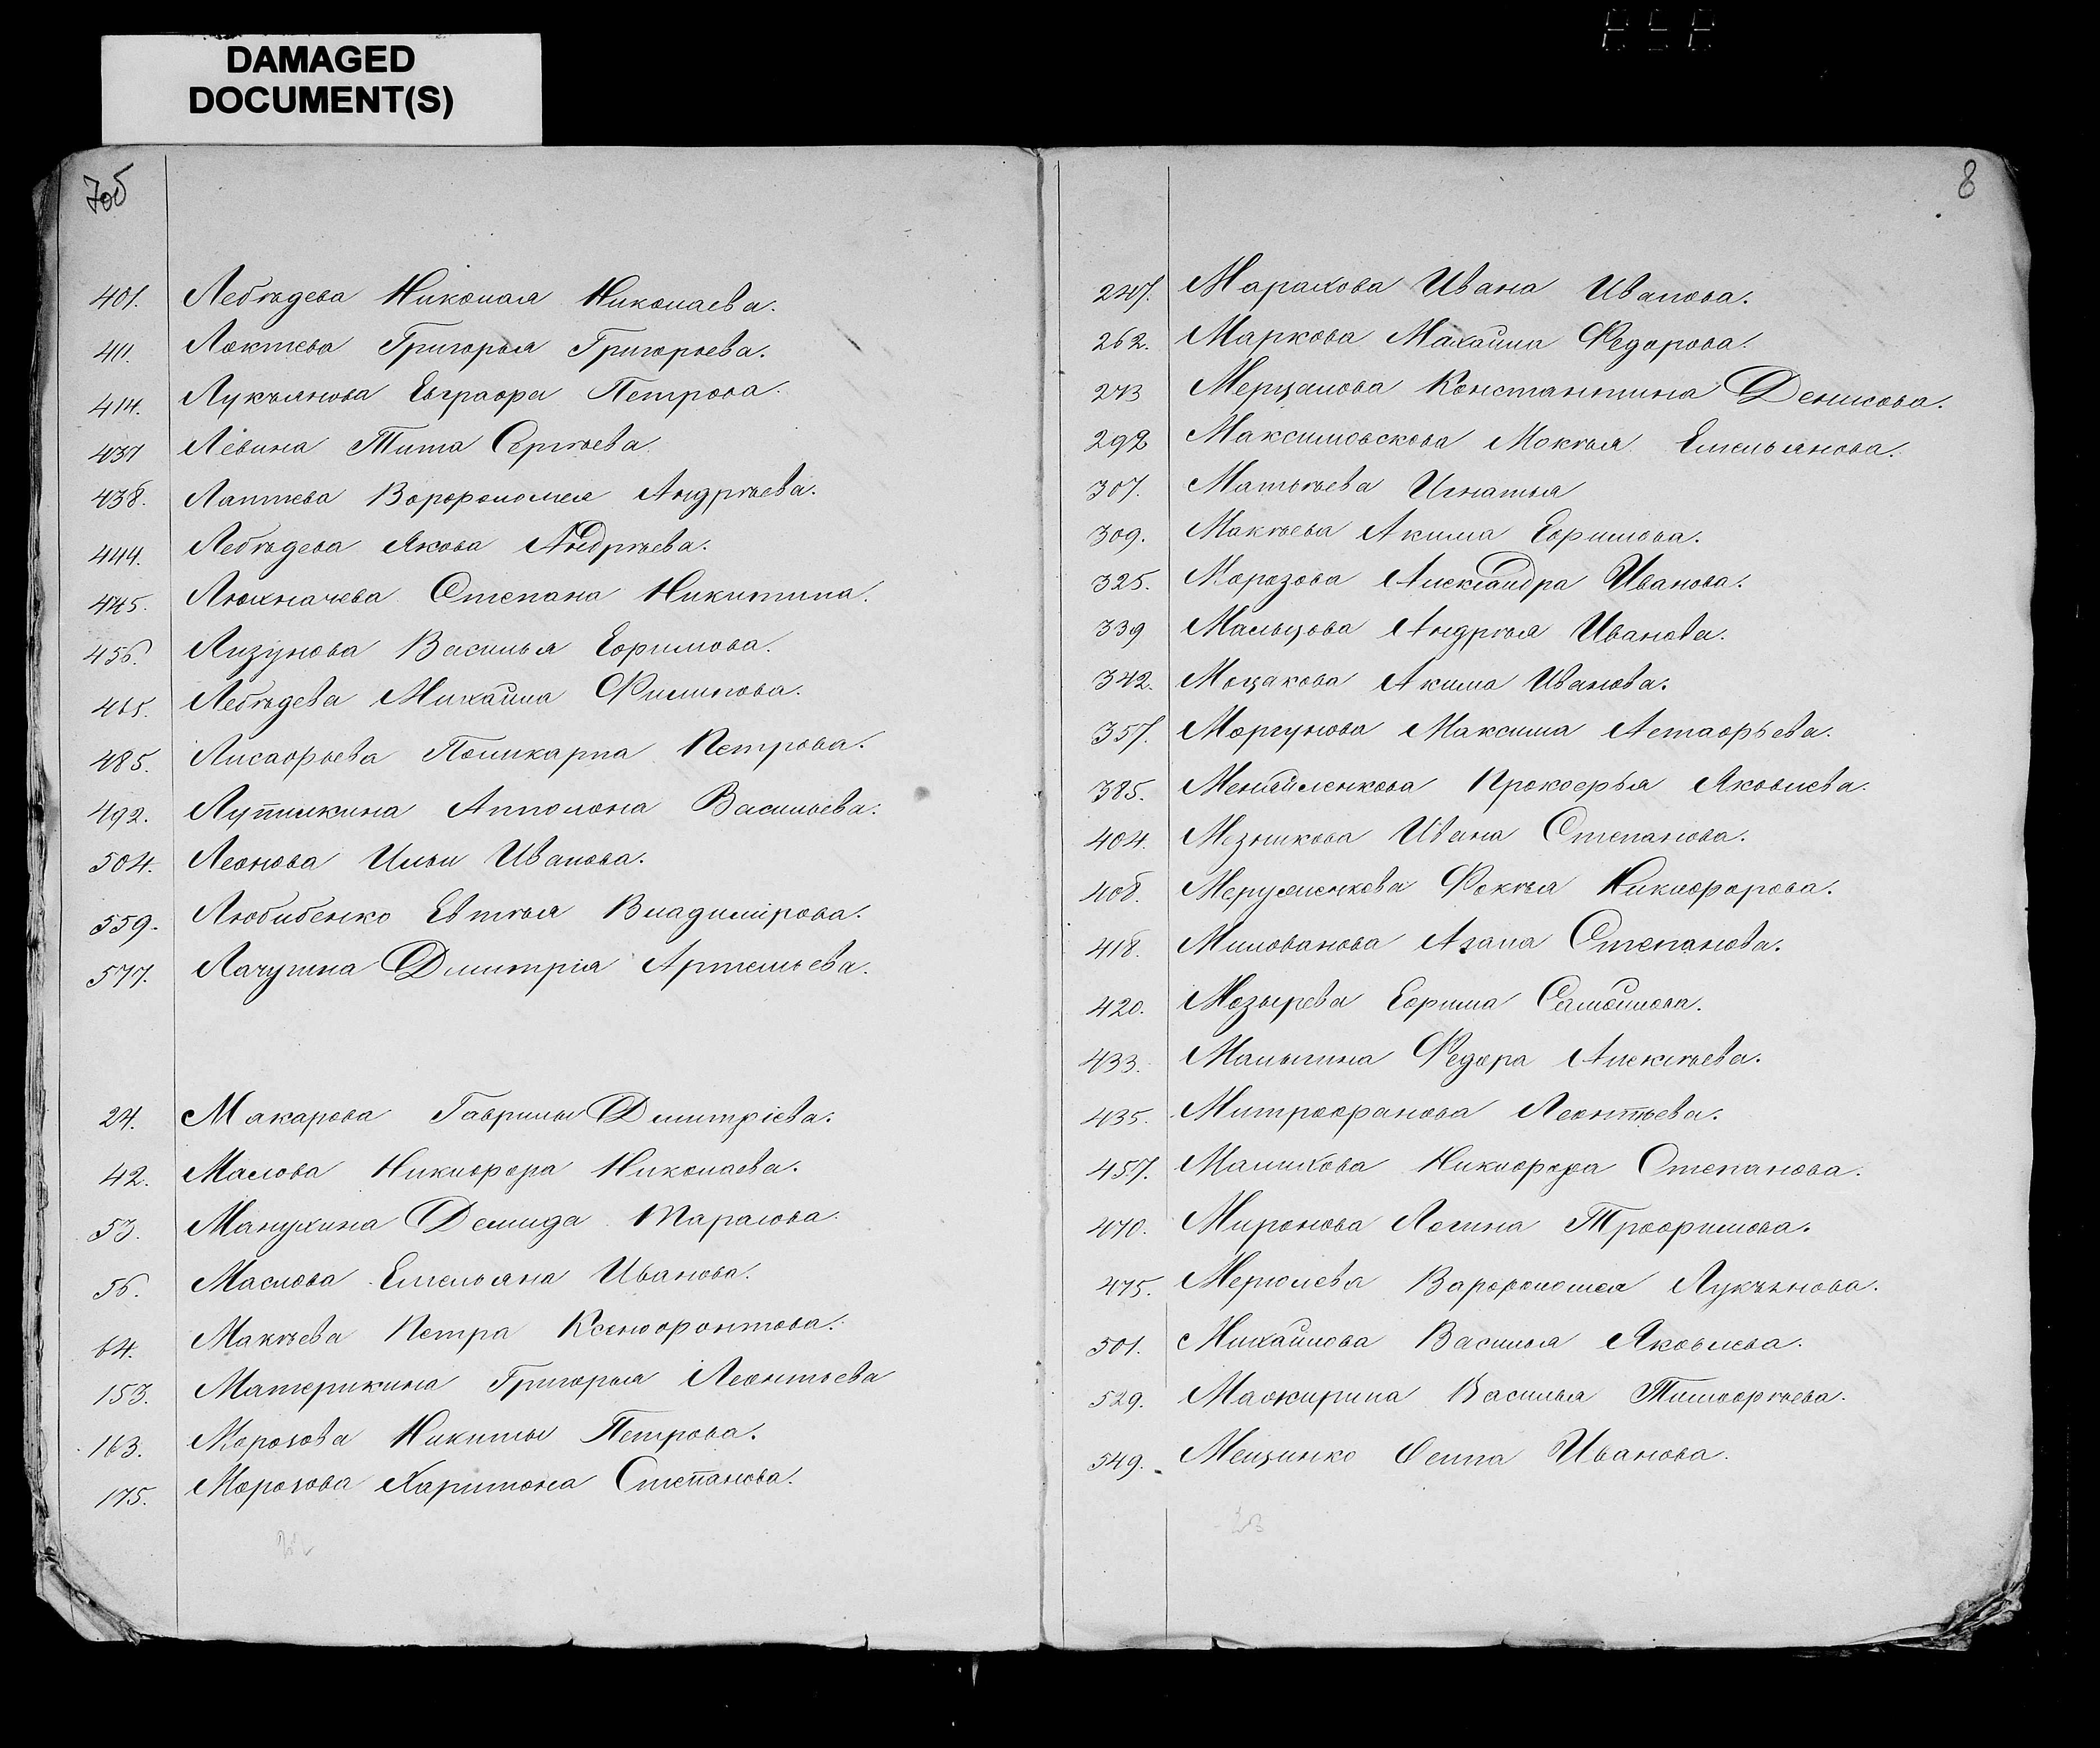 DAMAGED
DOCUMENT(S)
7об
401. Лебѣдева Николая Николаева.
411. Локтева Григорья Григорьева.
414. Лукьянова Евграфа Петрова.
437 Левина Тита Сергѣева.
438. Лаптева Ворфоломея Андрѣева.
444. Лебѣдева Якова Андрѣева.
445. Люхначева Степана Никитина.
456. Лизунова Василья Ефимова.
465. Лебѣдева Михайла Филипова.
485. Лисафьева Поликарпа Петрова.
492. Лупилкина Апполона Васильева.
504. Леонова Ильи Иванова.
559. Любибенко Евтѣя Владимірова.
577. Лачугина Дмитрія Артемьева.
24. Макарова Гаврилы Дмитріева.
42. Малова Никифора Николаева.
53. Манухина Демида Тарасова.
56. Маслова Емельяна Иванова.
64. Макѣева Петра Ксенофонтова.
153. Материкина Григорья Леонтьева
163. Морозова Никиты Петрова.
175. Морозова Харитона Степанова.
8
247. Морахова Ивана Иванова.
262. Маркова Михайла Федорова.
273 Мерцалова Константина Денисова.
292 Максимовскова Мокѣя Емельянова.
307. Матвѣева Игнатья
309. Макѣева Акима Ефимова.
325. Морозова Александра Иванова.
339 Мальцова Андрѣя Иванова.
342. Моцакова Акима Иванова.
357. Моргунова Максима Астафьева.
385. Прокофья Яковлева.
404. Мезникова Ивана Степанова.
408. Фокѣя Никифорова.
418. Милованова Агапа Степанова.
420. Мозырева Ефима Самойлова.
433. Малыгина Федора Алексѣева.
435. Митрофанова Леонтьева.
457. Маликова Никифора Степанова.
470. Миронова Логина Трофимова.
475. Мерюлева Варфоломея Лукьянова.
501. Михайлова Василья Яковлева.
529. Мажирина Василья Тимофѣева.
549. Мецинко Осипа Иванова.